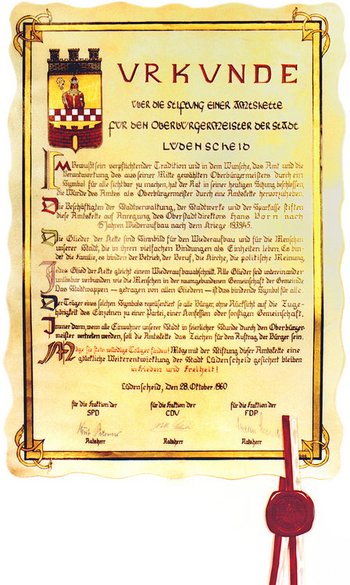 URKUNDE
ÜBER DIE STIFTUNG EINER AMTSKETTE
FÜR DEN OBERBÜRGERMEISTER DER STADT
LÜDENSCHEID
Im Bewußtsein verpflichtender Tradition und in dem Wunsche, das Amt und die
Verantwortung des aus seiner Mitte gewählten Oberbürgermeisters durch ein
Symbol für alle sichtbar zu machen, hat der Rat in seiner heutigen Sitzung beschlossen,
die Würde des Amtes als Oberbürgermeister durch eine Amtskette hervorzuheben.
Die Beschäftigten der Stadtverwaltung, der Stadtwerke und der Sparkasse stiften
diese Amtskette auf Anregung des Oberstadtdirektors Hans Dorn nach
15 Jahren Wiederaufbau nach dem Kriege 1939/45.
Die Glieder der Kette sind Sinnbild für den Wiederaufbau und für die Menschen
unserer Stadt, die in ihren vielfachen Bindungen als Einheiten leben. Es bin-
det die Familie, es binden der Betrieb, der Beruf, die Kirche, die politische Meinung.
Jedes Glied der Kette gleicht einem Wiederaufbauabschnitt. Alle Glieder sind untereinander
verbunden wie die Menschen in der raumgebundenen Gemeinschaft der Gemeinde
Das Stadtwappen — getragen von allen Gliedern — ist das bindende Symbol für alle.
Der Träger eines solchen Symbols repräsentiert so alle Bürger, ohne Rücksicht auf die Zuge-
hörigkeit des Einzelnen zu einer Partei, einer Konfession oder sonstigen Gemeinschaft.
Immer dann, wenn alle Einwohner unserer Stadt in feierlicher Stunde durch den Oberbürger-
meister vertreten werden, soll die Amtskette das Zeichen für den Auftrag der Bürger sein.
Möge sie stets würdige Träger finden! Möge mit der Stiftung dieser Amtskette eine
glückliche Weiterentwicklung der Stadt Lüdenscheid gesichert bleiben
in Frieden und Freiheit!
Lüdenscheid, den 28. Oktober 1960
für die Fraktion der SPD
für die Fraktion der CDU
für die Fraktion der FDP
Ratsherr
Ratsherr
Ratsherr